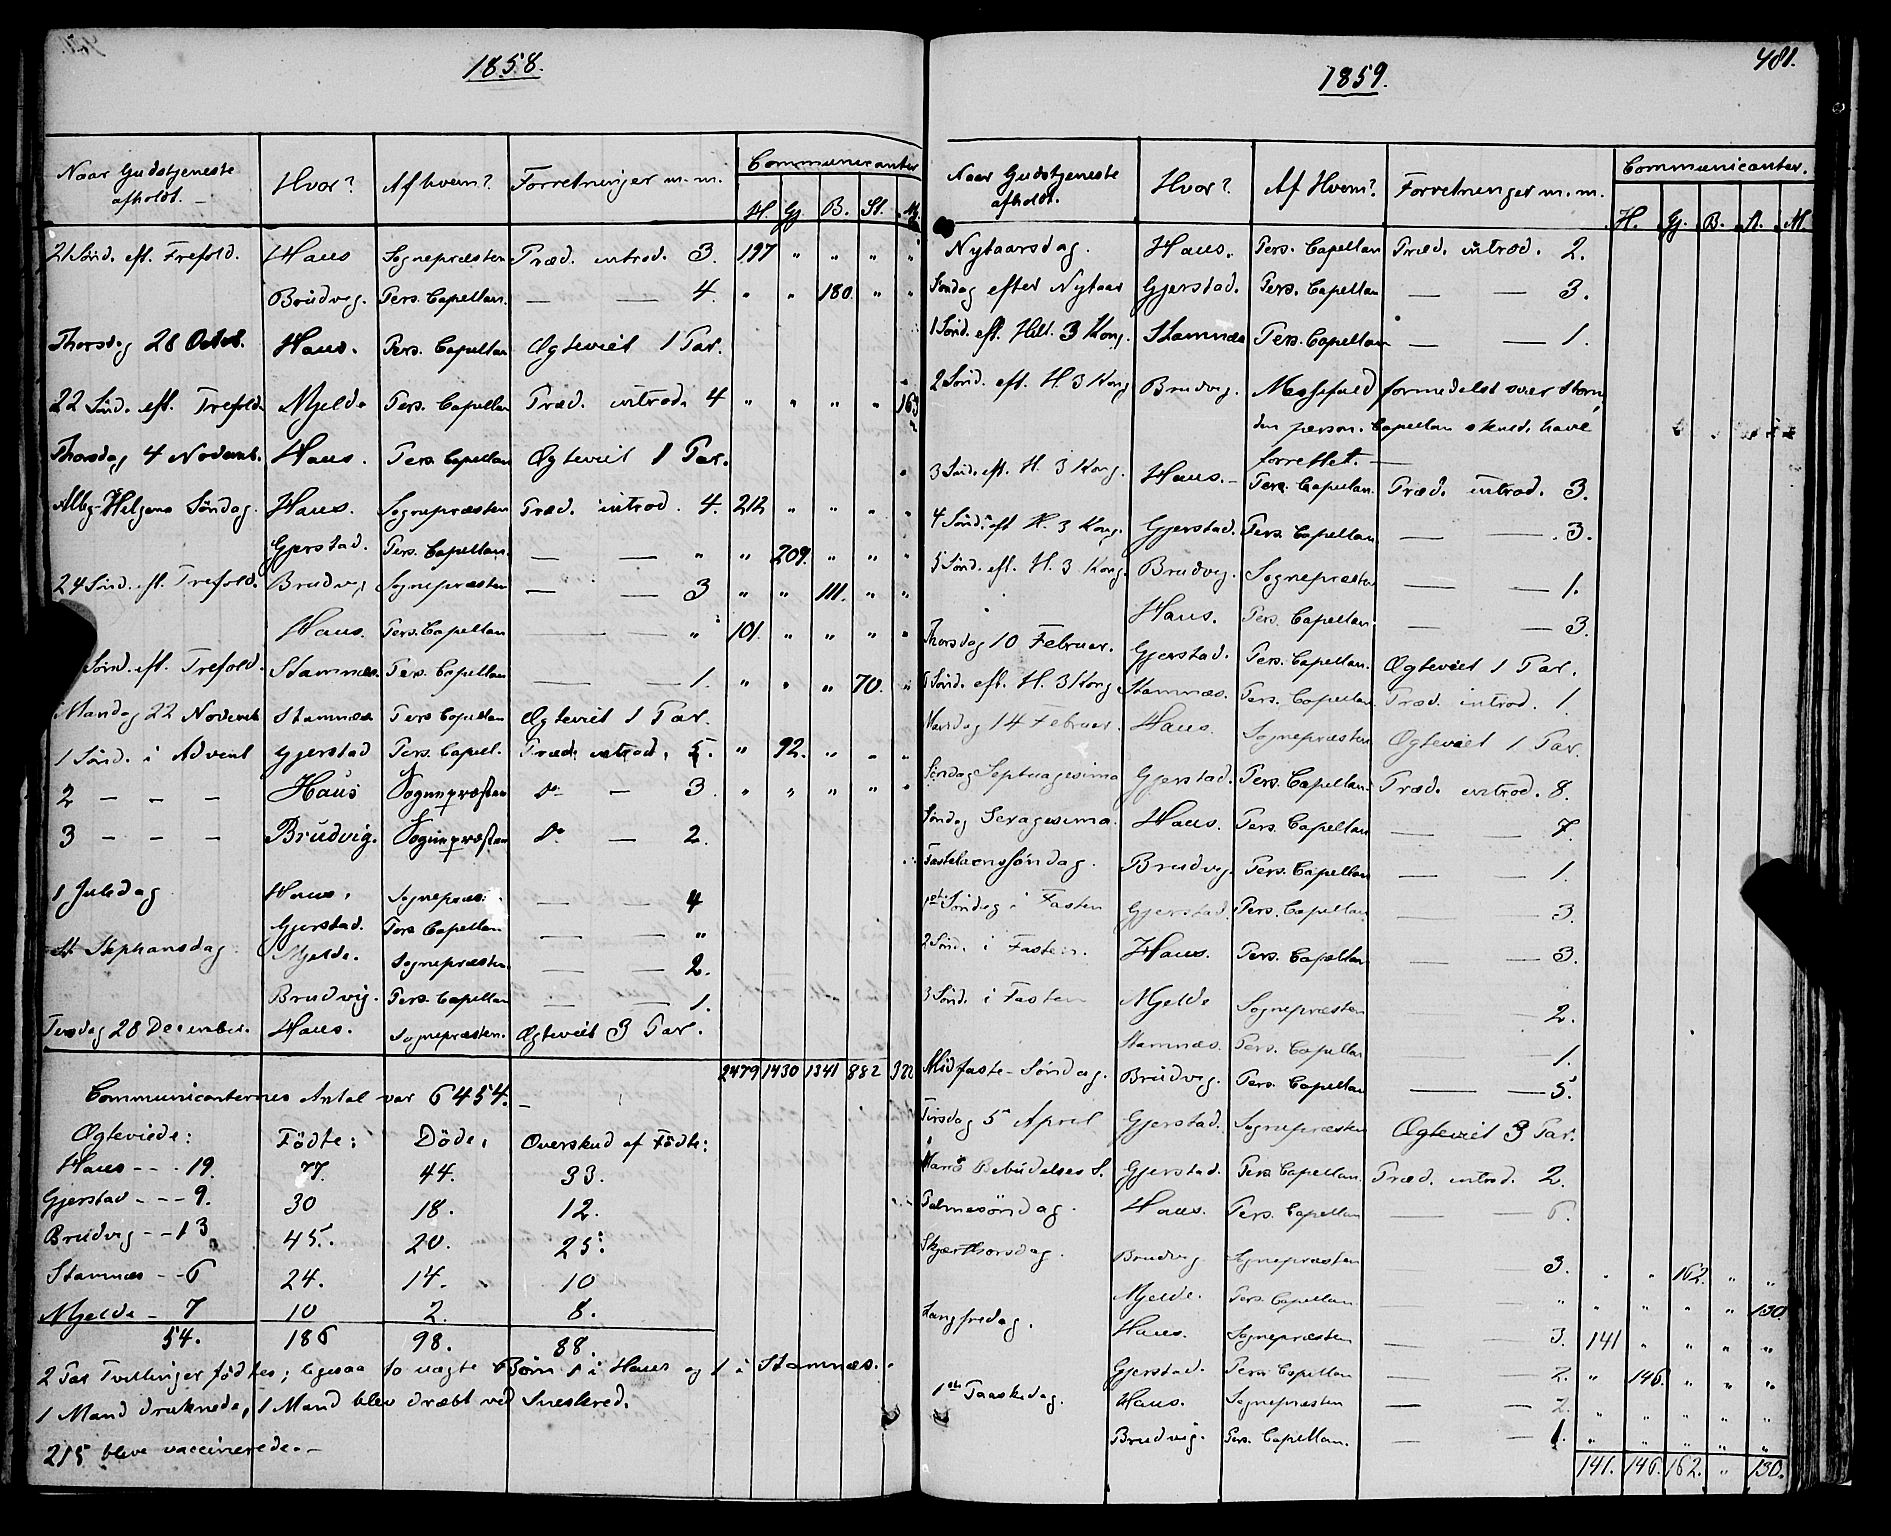 1858.
Naar Gudstjeneste afholdt. Hvor? Af hvem? Forretninger m.m. Communicanter
H. Gj. B. St. M.
21 Sönd. eft. Trefold. Haus Sognepræsten Præd. introd. 3. 197 " " " "
Brudvig. Pers. Capellan. — — 4. " " 180. " "
Thorsdag 28 Octob. Haus. Pers. Capellan Ægteviet 1 Par.
22 Sönd. eft. Trefold. Mjelde Pers. Capellan Præd. introd. 4 " " " " 163
Thorsdag 4 Novemb. Haus. Pers. Capellan Ægteviet 1 Par.
Alle-Helgens Söndag. Haus. Sognepræsten Præd. introd. 4. 212 " " " "
Gjerstad. Pers. Capellan. — — " " 209. " " "
24 Sönd. eft. Trefold. Brudvig Sognepræsten — — 3 " " 111. " "
Haus. Pers. Capellan — — " 101. " " " "
Sönd. eft. Trefold. Stamnæs. Pers. Capellan — — 1. " " " 70. "
Mandag 22 Novemb Stamnæs Pers. Capellan Ægteviet 1 Par.
1 Sönd. i Advent Gjerstad Pers. Capell. Præd. introd. 5. " 92. " " "
2 — — — Haus Sognepræsten do — 3. " " " " "
3 — — — Brudvig. Sognepræsten do — 2.
1 Juledag Haus. Sognepræs. — — 4
Gjerstad. Pers. Capellan — — "
St. Stephansdag. Mjelde. Sognepræsten. — — 2.
Brudvig. Pers. Capellan — — 1.
Tirsdag 28 December. Haus. Sognepræsten. Ægteviet 3 Par.
2479 1430 1341 882 322
Communicanternes Antal var 6454. —
Ægteviede: Födte: Döde: Overskud af Födte:
Haus - - - 19. 77. 44. 33.
Gjerstad - - - 9. 30 18. 12.
Brudvig - - 13. 45. 20. 25.
Stamnæs - - 6 24. 14. 10
Mjelde - 7 10 2. 8.
54. 186 98. 88.
2 Par Tvillinger födtes; ligesaa to uægte Börn 1 i Haus og 1 i Stamnæs.
1 Mand druknede, 1 Mand blev dræbt ved Sneskred.
215 bleve vaccinerede. —
481.
1859.
Naar Gudstjeneste afholdt. Hvor? Af Hvem? Forretninger m.m. Communicanter.
H. Gj. B. St. M.
Nytaarsdag. Haus. Pers. Capellan Præd. introd. 2.
Söndag efter Nytaar Gjerstad. Pers. Capellan — — 3.
1 Sönd. eft. Hell. 3 Kong. Stamnæs Pers. Capellan — — 1.
2 Sönd. eft. H. 3 Kong Brudvig. Messefald formedelst svær Storm,
den person. Capellan skulde have
forrettet. —
3 Sönd. eft. H. 3 Kong. Haus. Pers. Capellan. Præd. introd. 3.
4 Sönd. eft H. 3 Kong. Gjerstad. Pers. Capellan — — 3.
5 Sönd. eft. H. 3 Kong. Brudvig. Sognepræsten — — 1.
Haus. Pers. Capellan. — — 3.
Thorsdag 10 Februar. Gjerstad. Pers. Capellan. Ægteviet 1 Par.
Sönd. eft. H. 3 Kong Stamnæs. Pers. Capellan. Præd. introd. 1.
Mandag 14 Februar. Haus. Sognepræsten Ægteviet 1 Par.
Söndag Septuagesima Gjerstad. Pers. Capellan. Præd. introd. 8.
Söndag Sexagesima. Haus. Pers. Capellan — — 7.
Fastelavnssöndag. Brudvig Pers. Capellan — — 1.
1ste Söndag i Fasten Gjerstad. Pers. Capellan — — 3.
2 Sönd. i Fasten. Haus. Pers. Capellan — — 3.
3 Sönd. i Fasten Mjelde Sognepræsten — — 2.
Stamnæs. Pers. Capellan — — 1.
Midfaste-Söndag. Brudvig. Pers. Capellan — — 5.
Tirsdag 5 April Gjerstad. Sognepræsten Ægteviet 3 Par.
Mariæ Bebudelses S. Gjerstad. Pers. Capellan. Præd. introd. 2.
Palmesöndag. Haus. Pers. Capellan — — 6.
Skjærthorsdag. Brudvig Sognepræsten — — 3. " " 162. " "
Mjelde. Pers. Capellan. " " " " " 130
Langfredag. Haus. Sognepræsten — — 3. 141 " " " "
Gjerstad. Pers. Capellan — — 2. " 146. " " "
1ste Paaskedag. Haus. Sognepræsten — — 2. " " " " "
Brudvig. Pers. Capellan. — — 1. " " " " "
141. 146. 162. " 130.